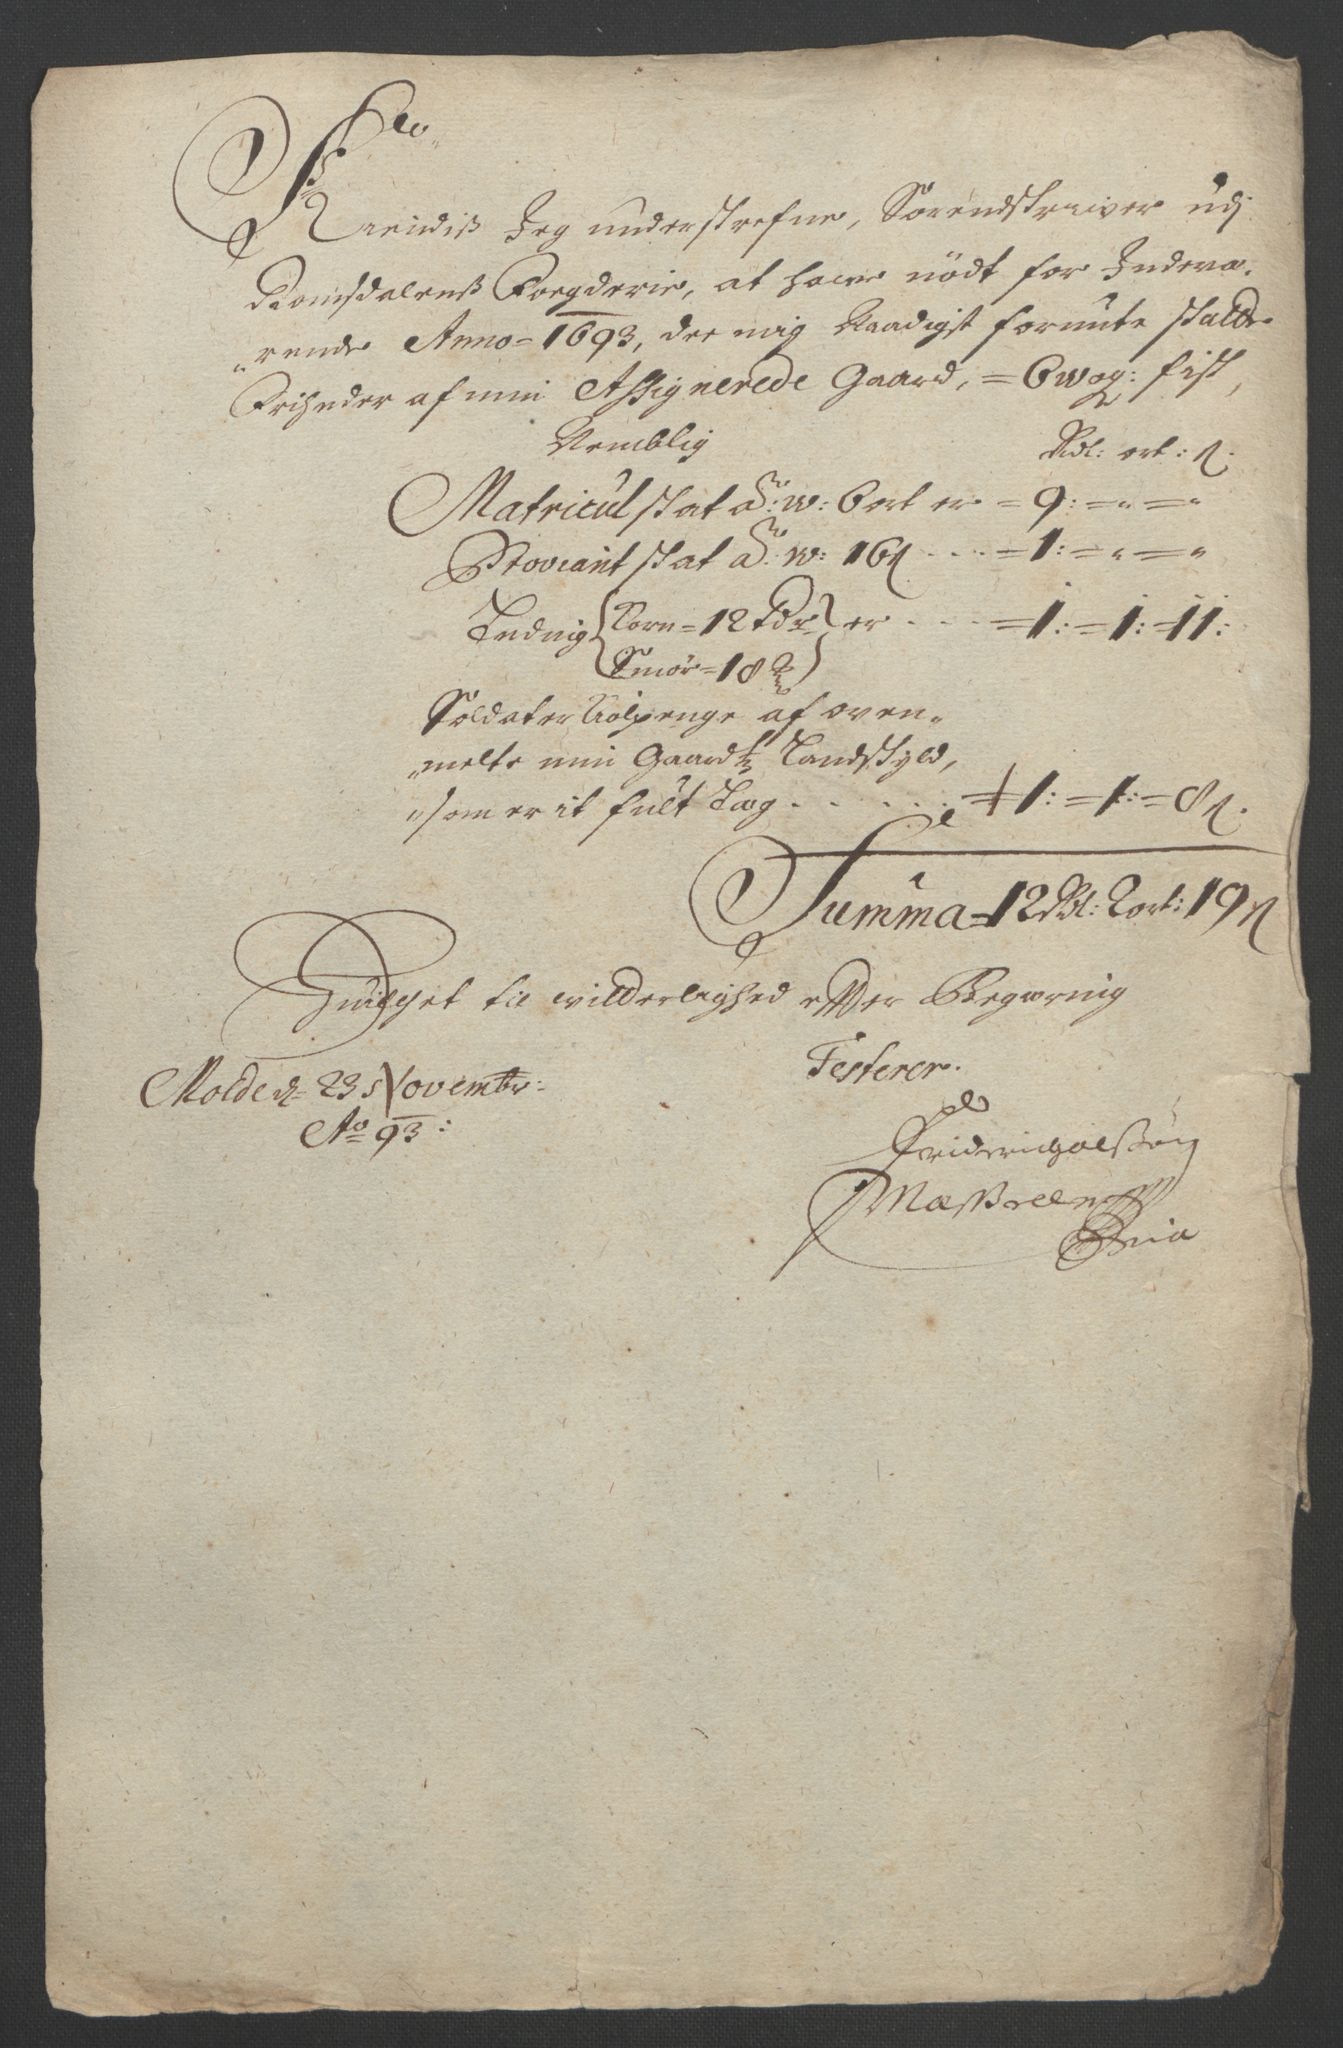 Kiendis Jeg underskrefne, Sorendskriwer udj
Romsdalens Foegderie, at hawe nödt for Indewæ-
"rende Anno = 1693, dee mig Naadigst forunte skatte
Friheder af min Assignerede Gaard, = 6 wog: fisk,
Nemblig Rdl: ort: ß.
Matricul skat à w: 6 ort er = 9: = " = "
Proviant skat à w: 16 ß .... = 1: = " = "
Leding {Korn = 12 Tdr} er .... = 1: = 1: = 11:
{Smör = 18
Soldater Kiolpenge af owen"
"melte min Gaards Landskyld,
"som er it fult Læg ...... = 1: = 1: = 8 ß.
Summa = 12 Rdl: 2 ort: 19 ß
Huilchet til witterlighed effter Begæring
Testerer.
Molde d. 23 Novembr:
Ao 93:
Friderich